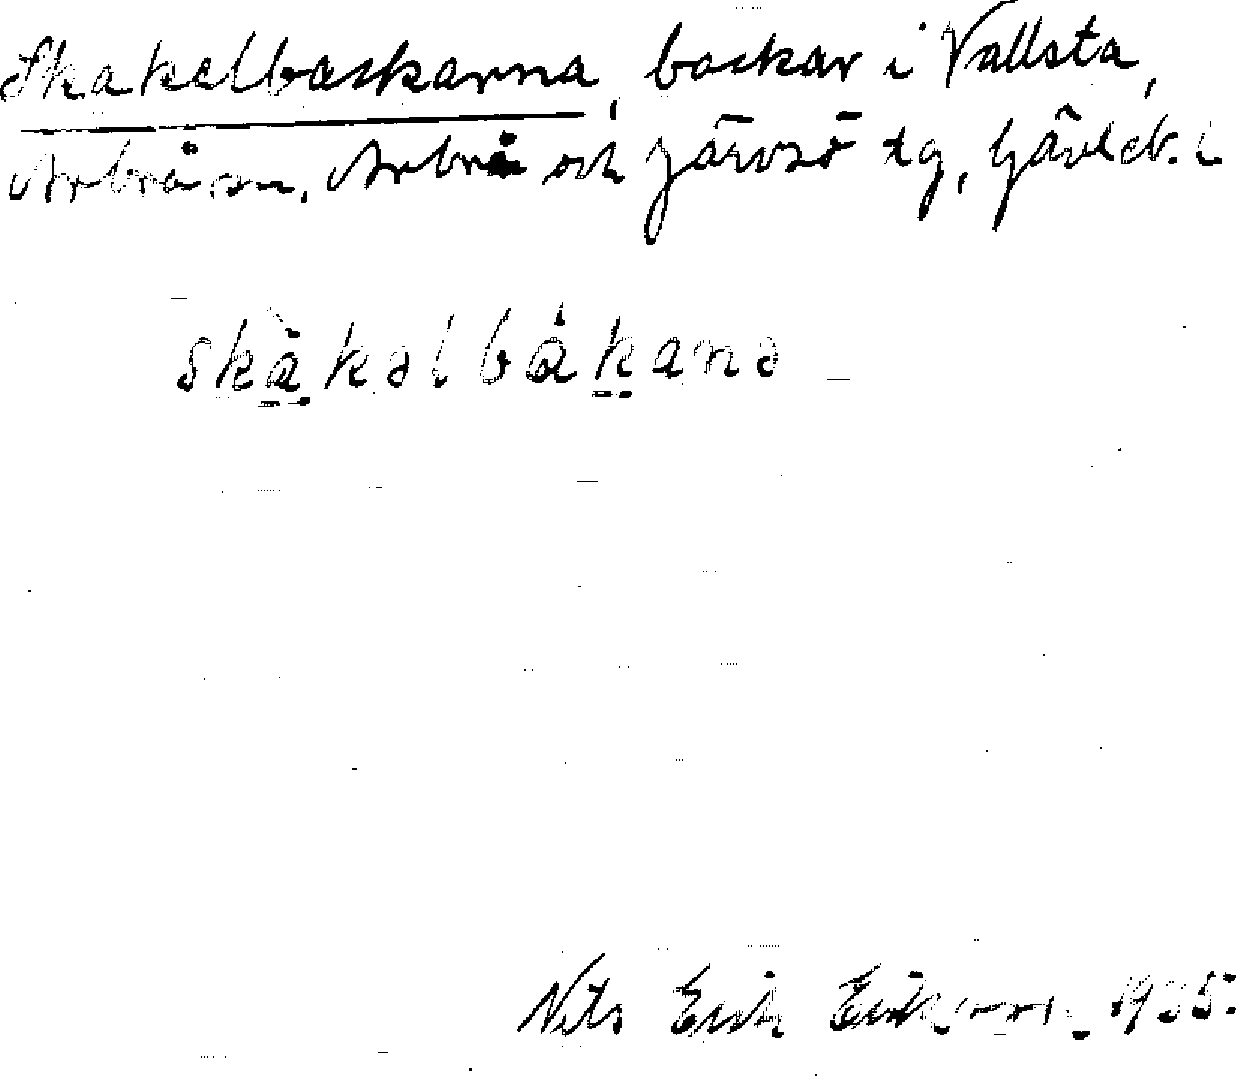 Skakelbackarna, backar i Vallsta,
Arbrå sn, Arbrå och Järvsö tg, Gävleb. l
skàkəlbàkanə
Nils Erik Eriksson 1935.